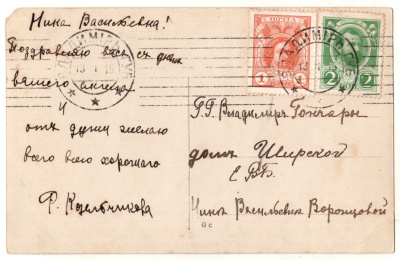 Нина Васильевна!
Поздравляю васъ съ днемъ
вашего ангела
и
отъ души желаю
всего всего хорошаго
Ф. Козельчикова
ВЛАДИМІРЪ ГУБ.
13 1
1
2
Г.Г. Владимиръ Гончары
домъ Ширской
Е.В.Б.
Нина Васильевна Воронцовой